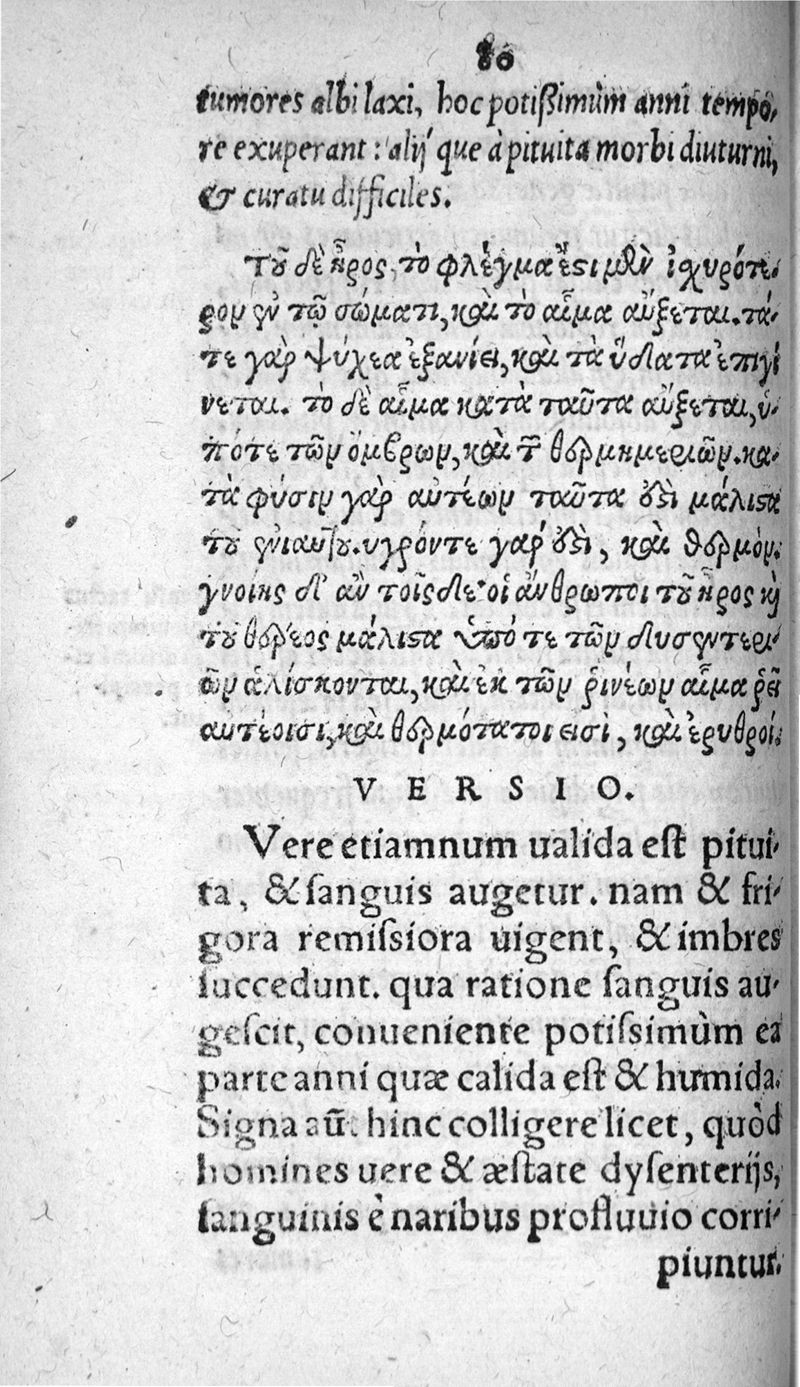 80
tumores albi laxi, hoc potißimùm anni tempo-
re exuperant: alij que à pituita morbi diuturni,
& curatu difficiles.
Τοῦ δὲ ἦρος, τὸ φλέγμα ἔτι μὲν ἰχυρότε-
ρον ἐν τῷ σώματι, καὶ τὸ αἷμα αὔξεται. τά-
τε γὰρ ψύχεα ἐξανίει, καὶ τὰ ὕδατα ἐπιγί
νεται. τὸ δὲ αἷμα κατὰ ταῦτα αὔξεται, ὑ-
πό τε τῶν ὄμβρων, καὶ τ̃ θερμημεριῶν. κα-
τὰ φύσιν γὰρ αυτέων ταῦτα ὅτι μάλιστα
τοῦ ἐνιαυτοῦ. υγρόντε γάρ ὅτι, καὶ θερμὸν.
γνοίης δ' ἂν τοῖς δε· οἱ ἄνθρωποι τοῦ ἦρος κὶ
τοῦ θέρεος μάλιστα ὑπό τε τῶν δυσεντερι-
ῶν ἁλίσκονται, καὶ ἐκ τῶν ῥινέων αἷμα ῥεῖ
αυτέοισι, καὶ θερμότατοι εισὶ, καὶ ἐρυθροί.
VERSIO.
Vere etiamnum ualida est pitui-
ta, & sanguis augetur. nam & fri-
gora remissiora uigent, & imbres
succedunt. qua ratione sanguis au-
gescit, conueniente potissimùm ea
parte anni quæ calida est & humida.
Signa aũt hinc colligere licet, quòd
homines uere & æstate dysenterijs,
sanguinis è naribus profluuio corri-
piuntur.